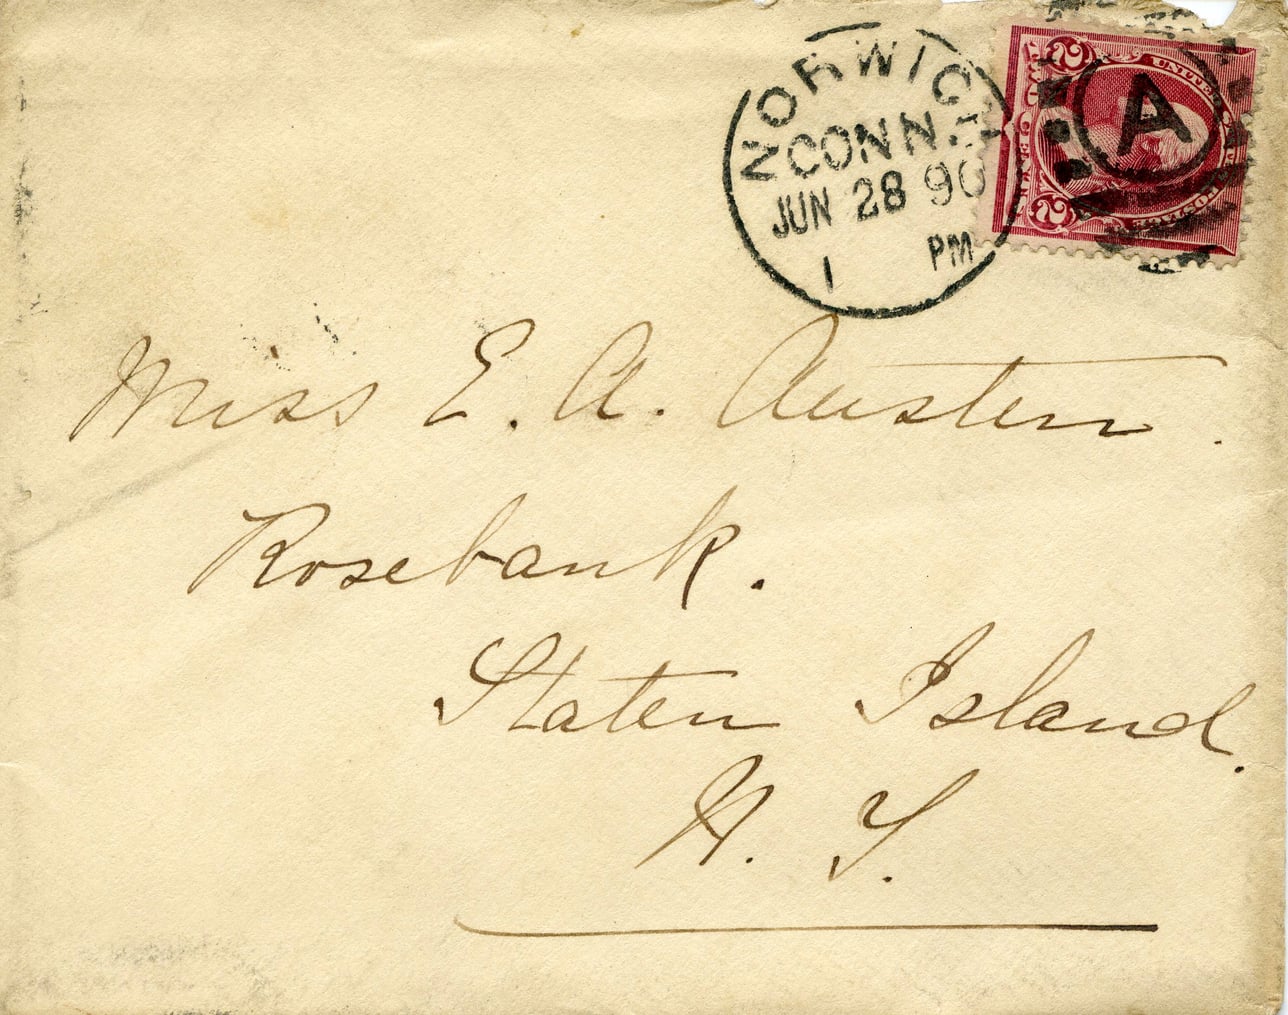 NORWICH
CONN.
JUN 28 90
1 PM
A
2 2
Miss E. A. Austen.
Rosebank.
Staten Island.
N. Y.